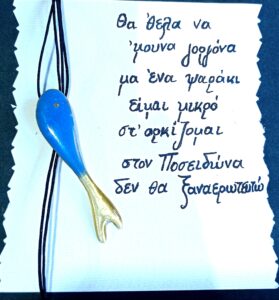 θα ήθελα να
'μουνα γοργόνα
μα ένα ψαράκι
είμαι μικρό
στ' ορκίζομαι
στον Ποσειδώνα
δεν θα ξαναερωτευτώ